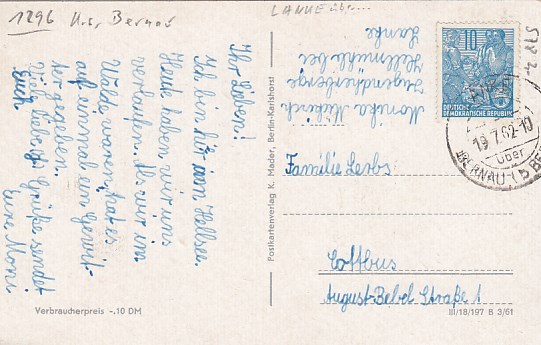 1296 Krs. Bernau
LANKE über....
Ihr Lieben!
Ich bin hier am Hellsee.
Heut haben wir uns
verlaufen. Als wir im
Walde waren, hat es
auf einmal ein Gewit-
ter gegeben.
Viele liebe Grüße sendet
Euch
Eure Moni
Verbraucherpreis -,10 DM
Postkartenverlag K. Mader, Berlin-Karlshorst
Monika
Jugendherberge
Hellmühle bei
Lanke
10
DEUTSCHE
DEMOKRATISCHE REPUBLIK
19.7.62-10
über
BERNAU (B BE
Familie Lerbs
Cottbus
August-Bebel Straße 1
III/18/197 B 3/61